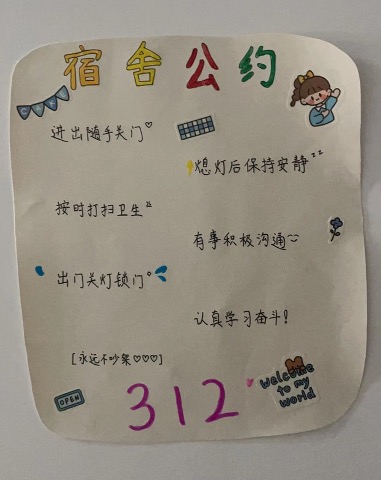 宿舍公约
CAFE
进出随手关门♡
熄灯后保持安静zz
按时打扫卫生
有事积极沟通
出门关灯锁门
认真学习奋斗!
[永远不吵架♡♡♡]
OPEN
312
welcome
to my
world